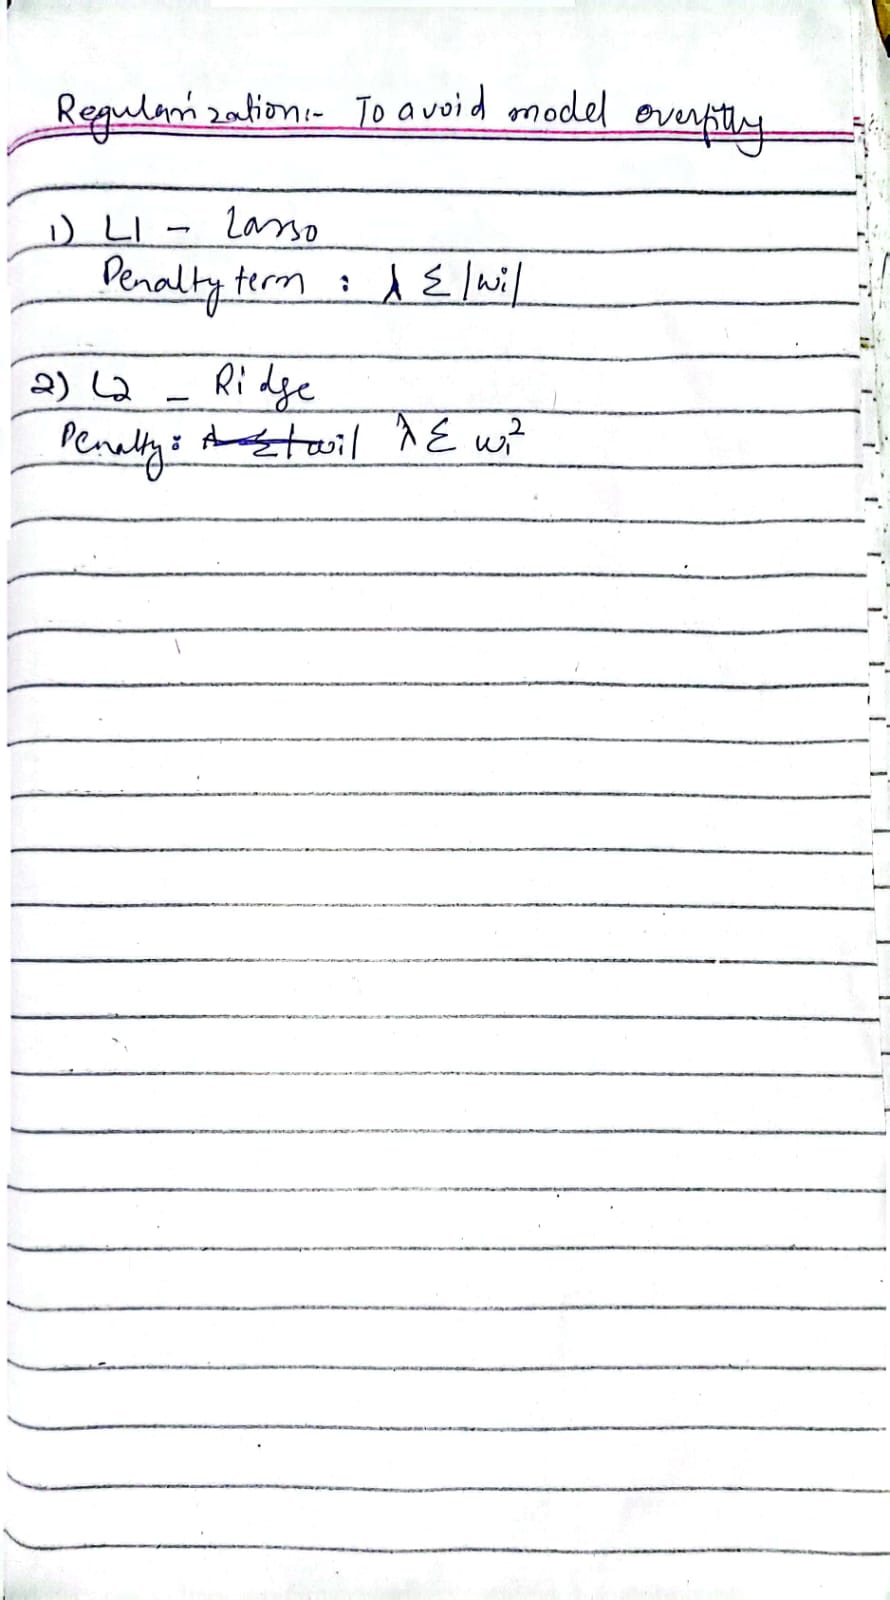 Regularization:- To avoid model overfitting
1) L1 - Lasso
Penalty term : λ Σ |wi|
2) L2 - Ridge
Penalty: λ Σ |wi| λ Σ wi²